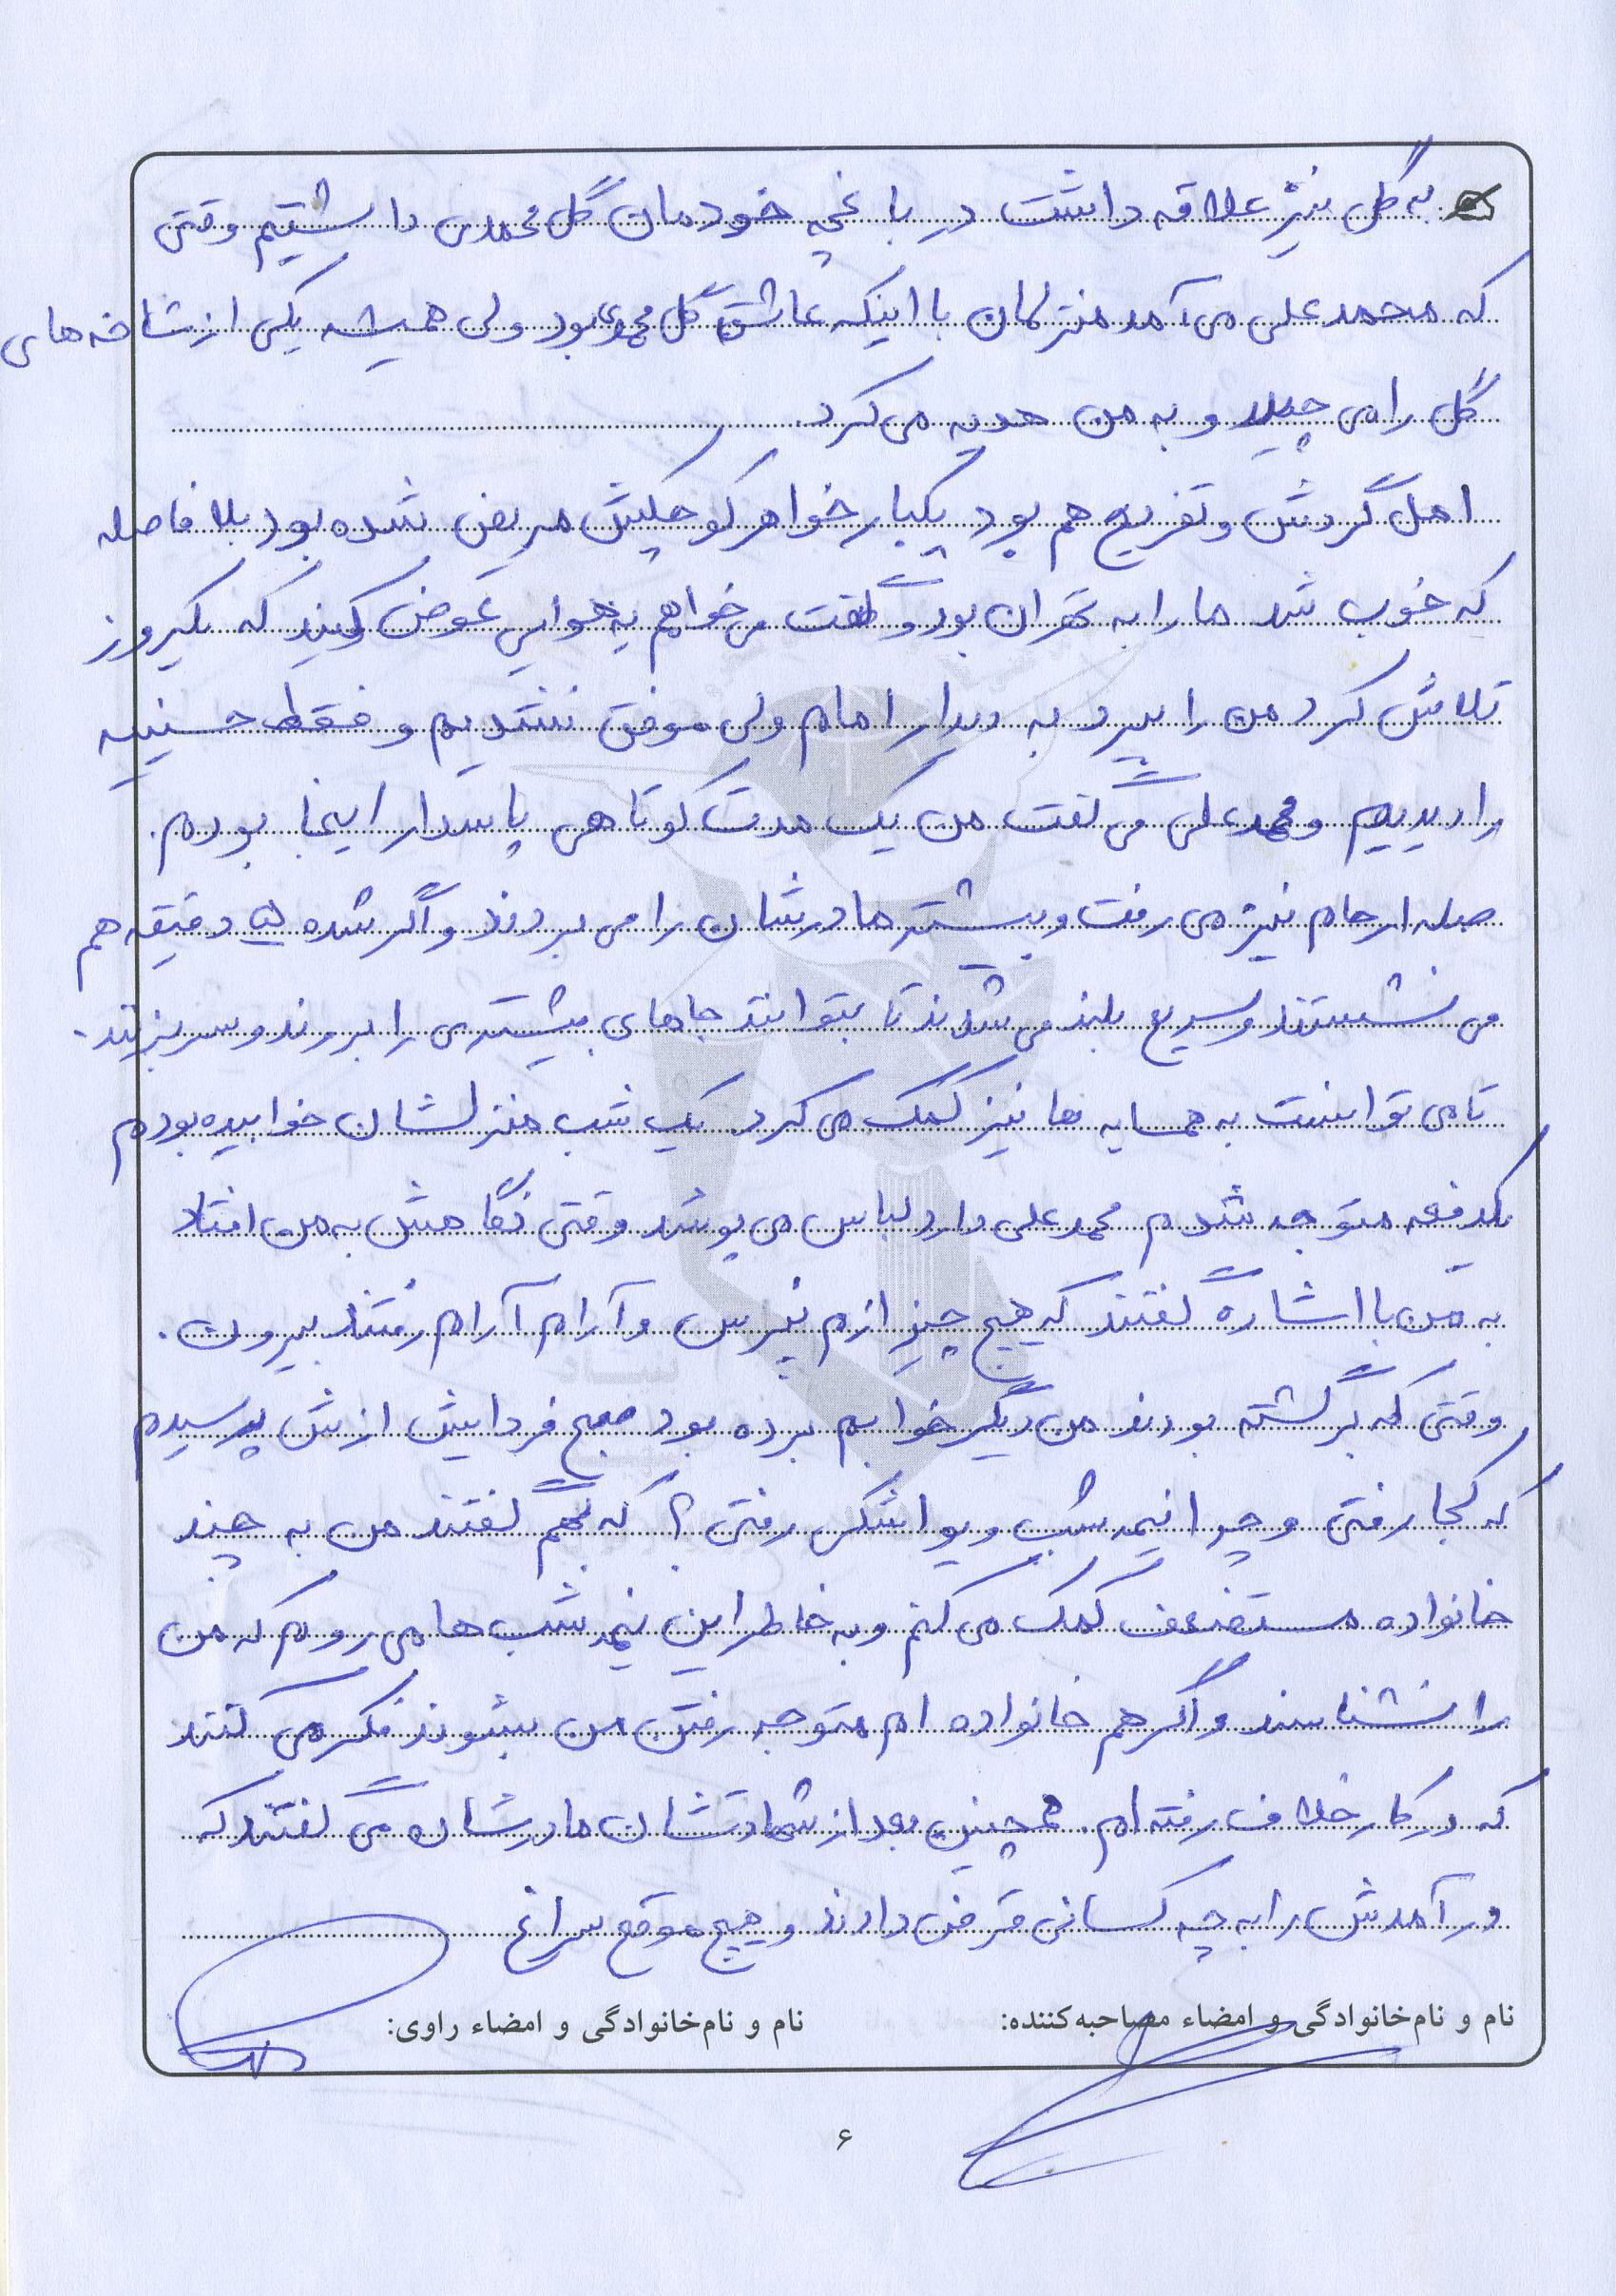 به گل نیز علاقه داشت در باغچه خودمان گل محمدی داشتیم وقتی
که محمدعلی می آمد منزلمان با اینکه عاشق گل محمدی بود ولی همیشه یکی از شاخه های
گل را می چید و به من هدیه می کرد.
اهل گردش و تفریح هم بود یکبار خواهر کوچکیش مریض شده بود بلافاصله
که خوب شد ما را به تهران بود و گفت می خواهم یه هوایی عوض کنید که یکروز
تلاش کرد من را ببرد به دیدار امام ولی موفق نشدیم و فقط حسینیه
را دیدیم و محمدعلی می گفت من یک مدت کوتاهی پاسدار اینجا بودم.
صله ارحام نیز می رفت و بیشتر مادرشان را می بردند و اگر شده ۵ دقیقه هم
می نشستند و سریع بلند می شدند تا بتوانند جاهای بیشتری را بروند و سر بزنند.
تا می توانست به همسایه ها نیز کمک می کرد. یک شب منزلشان خوابیده بودم
یکدفعه متوجه شدم محمدعلی دارد لباس می پوشد وقتی نگاهش به من افتاد
به من با اشاره گفتند که هیچ چیز ازم نپرس و آرام آرام رفتند بیرون.
وقتی که برگشته بودند من دیگر خوابم برده بود صبح فردایش ازش پرسیدم
که کجا رفتی و چرا نیمه شب و یواشکی رفتی؟ که بهم گفتند من به چند
خانواده مستضعف کمک می کنم و به خاطر این نیمه شب ها می روم که من
را نشناسند و اگر هم خانواده ام متوجه رفتن من بشوند فکر می کنند
که در کار خلاف رفته ام. همچنین بعد از شهادتشان مادرشان می گفتند که
درآمدش را به چه کسانی قرض دادند و هیچ موقع سراغ
نام و نام‌خانوادگی و امضاء مصاحبه‌کننده: نام و نام‌خانوادگی و امضاء راوی:
۶